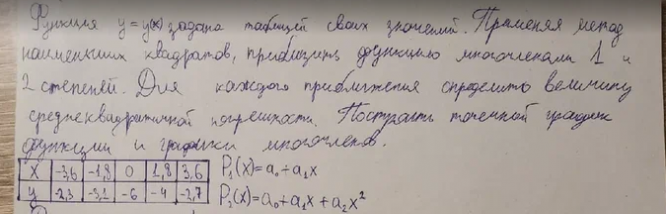 Функция y = y(x) задана таблицей своих значений. Применяя метод
наименьших квадратов, приблизить функцию многочленами 1 и
2 степеней. Для каждого приближения определить величину
среднеквадратичной погрешности. Построить точечный график
функции и графики многочленов.
X | -3,6 | -1,8 | 0 | 1,8 | 3,6 P₁(x)=a₀+a₁x
y | -2,3 | -3,1 | -6 | -4 | -2,7 P₂(x)=a₀+a₁x+a₂x²